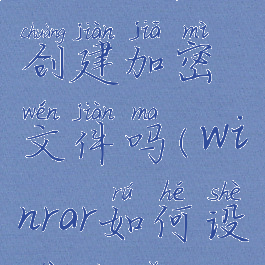 chuàng jiàn jiā mì
创建加密
wén jiàn ma
文件吗(wi
rú hé shè
nrar如何设